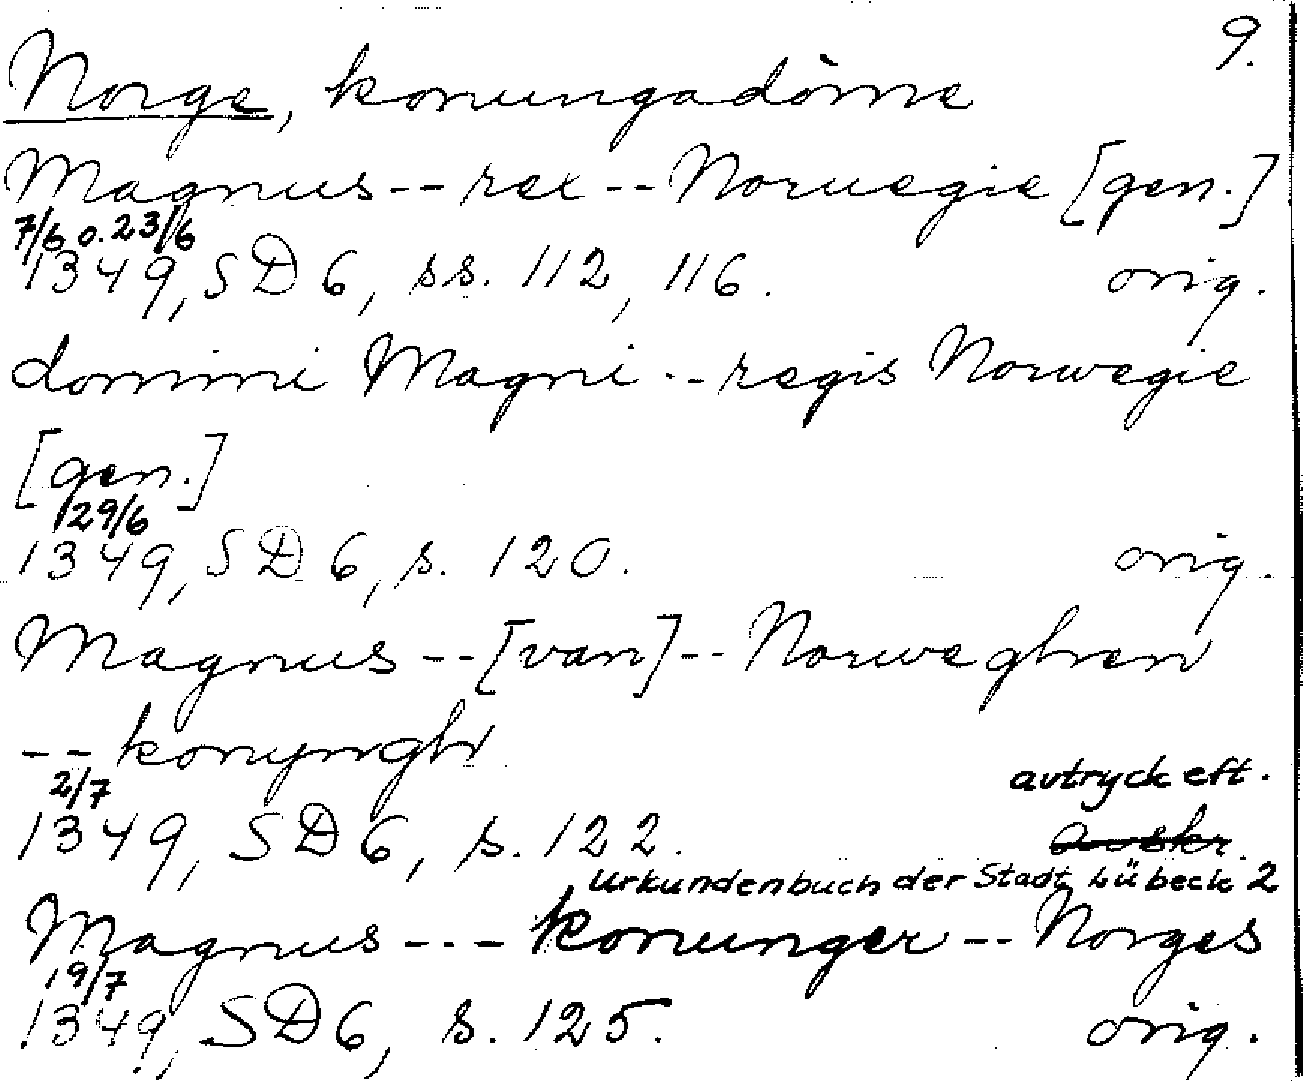 9.
Norge, konungadöme
Magnus -- rex -- Noruegie [gen.]
7/6 o. 23/6
1349, SD 6, ss. 112, 116. orig.
domini Magni -- regis Norwegie
[gen.]
29/6
1349, SD 6, s. 120. orig.
Magnus -- [van] -- Norweghen
-- konyngh
2/7
avtryck eft.
1349, SD 6, s. 122. avskr.
Urkundenbuch der Stadt Lübeck 2
Magnus --- konunger -- Norges
19/7
1349, SD 6, s. 125. orig.